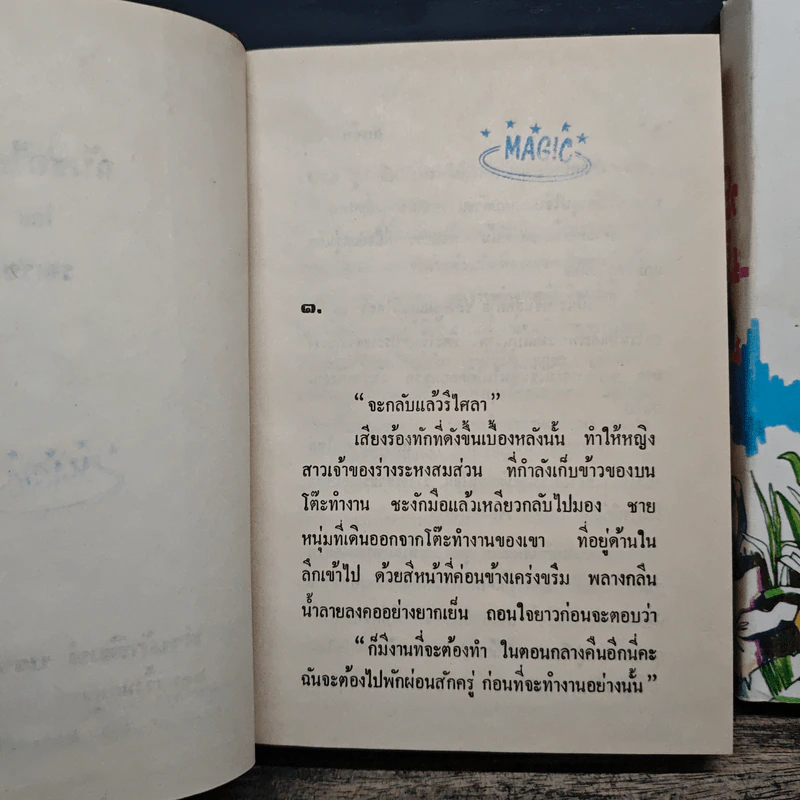 MAGIC
๑.
“จะกลับแล้วรึไศลา”
เสียงร้องทักที่ดังขึ้นเบื้องหลังนั้น ทำให้หญิง
สาวเจ้าของร่างระหงสมส่วน ที่กำลังเก็บข้าวของบน
โต๊ะทำงาน ชะงักมือแล้วเหลียวกลับไปมอง ชาย
หนุ่มที่เดินออกจากโต๊ะทำงานของเขา ที่อยู่ด้านใน
ลึกเข้าไป ด้วยสีหน้าที่ค่อนข้างเคร่งขรึม พลางกลืน
น้ำลายลงคออย่างยากเย็น ถอนใจยาวก่อนจะตอบว่า
“ก็มีงานที่จะต้องทำ ในตอนกลางคืนอีกนี่คะ
ฉันจะต้องไปพักผ่อนสักครู่ ก่อนที่จะทำงานอย่างนั้น”